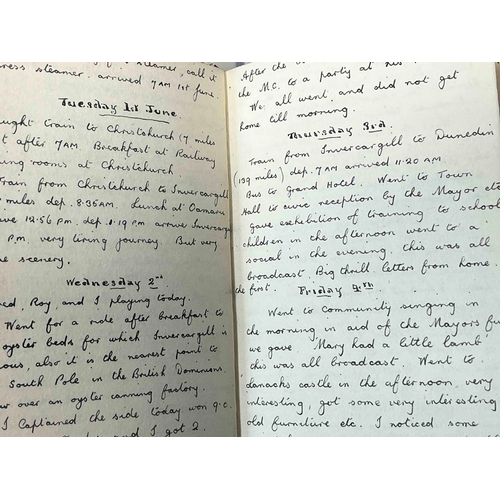 steamer, call it
ress steamer. arrived 7AM 1st June.
Tuesday 1st June.
ught train to Christchurch (7 miles
t after 7AM. Breakfast at Railway
ing rooms at Christchurch.
Train from Christchurch to Invercargill
miles dep. 8.35AM. Lunch at Oamaru
ve 12.56 PM. dep. 1.19 PM arrive Invercargi
P.M. very tiring journey. But very
e scenery.
Wednesday 2nd
ed, Roy, and I playing today.
Went for a ride after breakfast to
oyster beds for which Invercargill is
ous, also it is the nearest point to
South Pole in the British Dominions.
w over an oyster canning factory.
I Captained the side today won 9.0.
and I got 2.
After the
the M.C. to a party at his
We all went, and did not get
home till morning.
Thursday 3rd.
Train from Invercargill to Dunedin
(139 miles) dep. 7AM arrived 11.20 AM.
Bus to Grand Hotel. Went to Town
Hall to civic reception by the Mayor etc
gave exhibition of training to school
children in the afternoon went to a
social in the evening, this was all
broadcast. Big thrill, letters from home.
the first.
Friday 4th.
Went to community singing in
the morning in aid of the Mayors fu
we gave 'Mary had a little lamb'
this was all broadcast. Went to
danachs castle in the afternoon, very
interesting, got some very interesting
old furniture etc. I noticed some